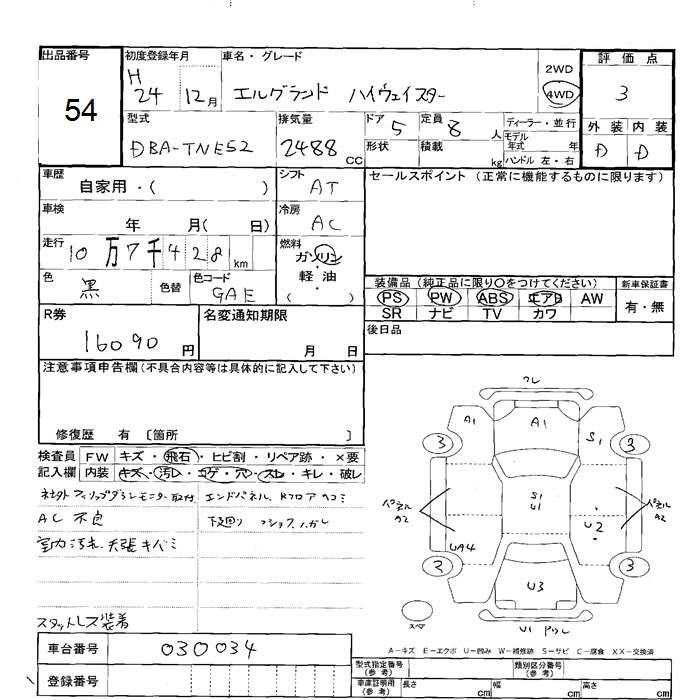 出品番号
54
初度登録年月
H 24 12月
車名・グレード
エルグランド ハイウェイスター
2WD
4WD
評価点
3
外装 内装
D D
型式
DBA-TNE52
排気量
2488 CC
ドア 5
形状
定員 8 人
積載 kg
ディーラー・並行
モデル年式 年
ハンドル 左・右
車歴
自家用・( )
シフト
AT
車検
年 月( 日)
冷房
AC
走行
10万7千428km
燃料
ガソリン
・
軽油
・
( )
色
黒
色替
色コード
GAE
セールスポイント(正常に機能するものに限ります)
装備品(純正品に限り○をつけてください)
新車保証書
PS PW ABS エアB AW
SR ナビ TV カワ
有・無
後日品
R券
16090円
名変通知期限
月 日
注意事項申告欄(不具合内容等は具体的に記入して下さい)
修復歴 有 〔箇所 〕
検査員記入欄
FW キズ・飛石・ヒビ割・リペア跡・×要
内装 キズ・汚レ・コゲ・穴・スレ・キレ・破レ
AC 不良
室内汚れ 天張キバミ
スタットレス装着
エンドパネル、Rフロアヘコミ
下廻り
ワレ
A1 A1 S1
3 3
パネル A2
S1
U1
U2
パネル A2
UA4
2 3
U3
スペア
U1 Pワレ
A-キズ E-エクボ U-凹み W-補修跡 S-サビ C-腐食 XX-交換済
車台番号 030034
登録番号
型式指定番号(参考)
類別区分番号(参考)
車庫証明用(参考) 長さ cm 幅 cm 高さ cm